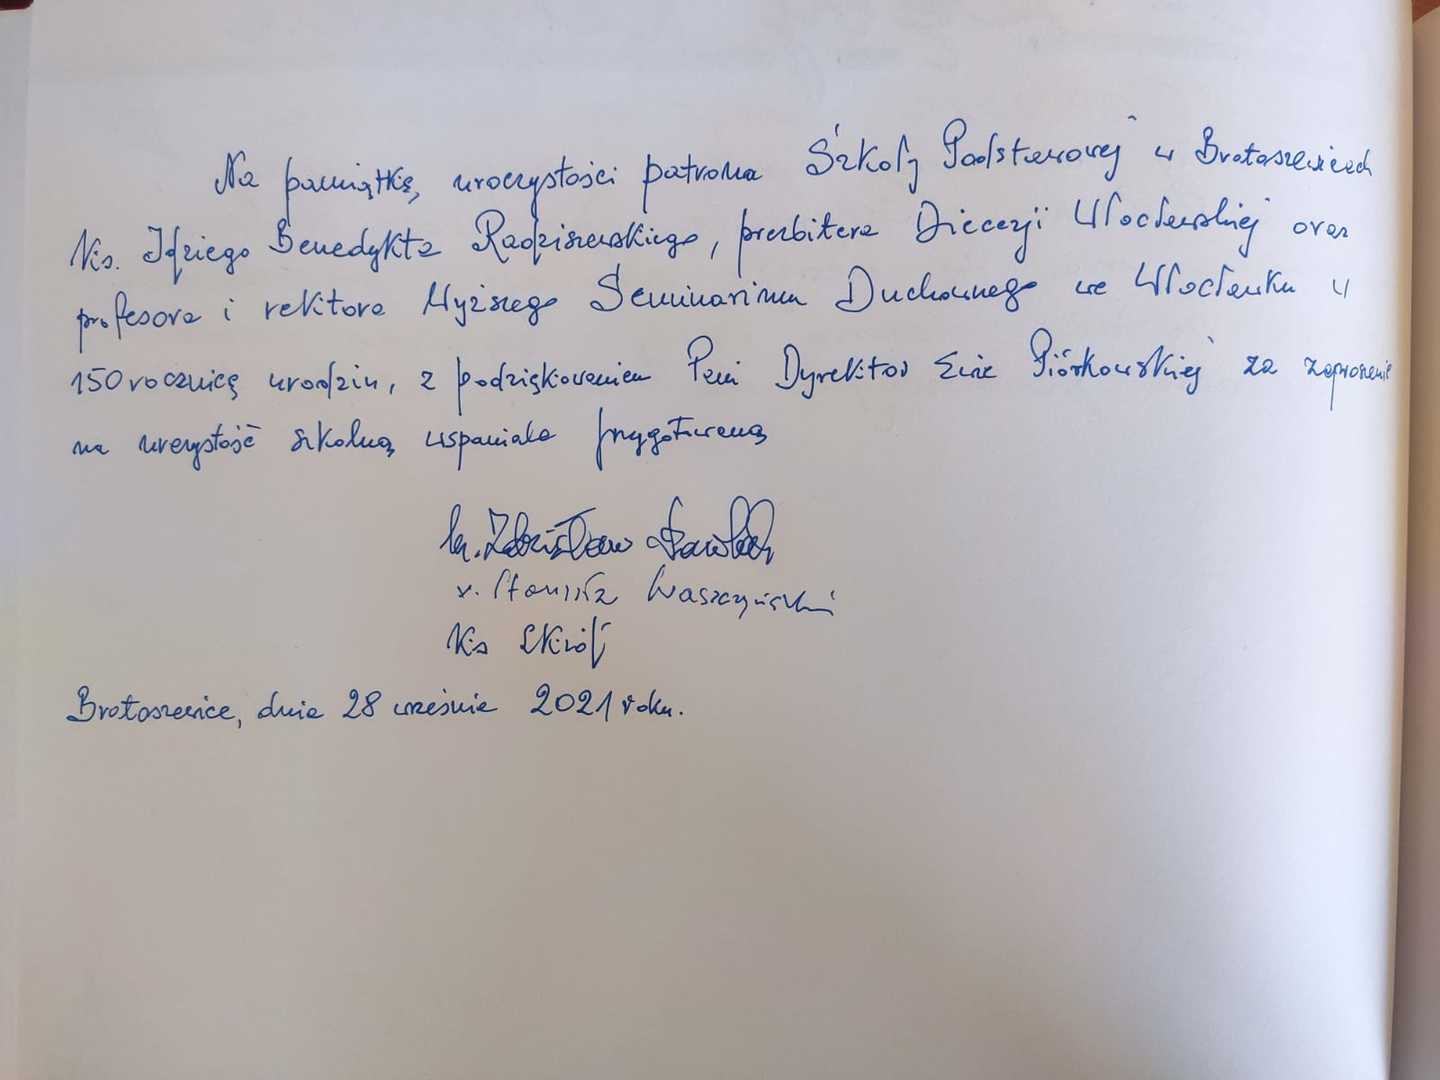 Na pamiątkę, uroczystości patrona Szkoły Podstawowej w Bratoszewicach
Ks. Idziego Benedykta Radziszewskiego, prezbitera Diecezji Włocławskiej oraz
profesora i rektora Wyższego Seminarium Duchownego we Włocławku w
150 rocznicę urodzin, z podziękowaniem Pani Dyrektor Piórkowskiej za zaproszenie
na uroczystość szkolną wspaniale przygotowaną
ks. Zdzisław Pawlak
x. Stanisław Waszczyński
Ks Król
Bratoszewice, dnia 28 września 2021 roku.